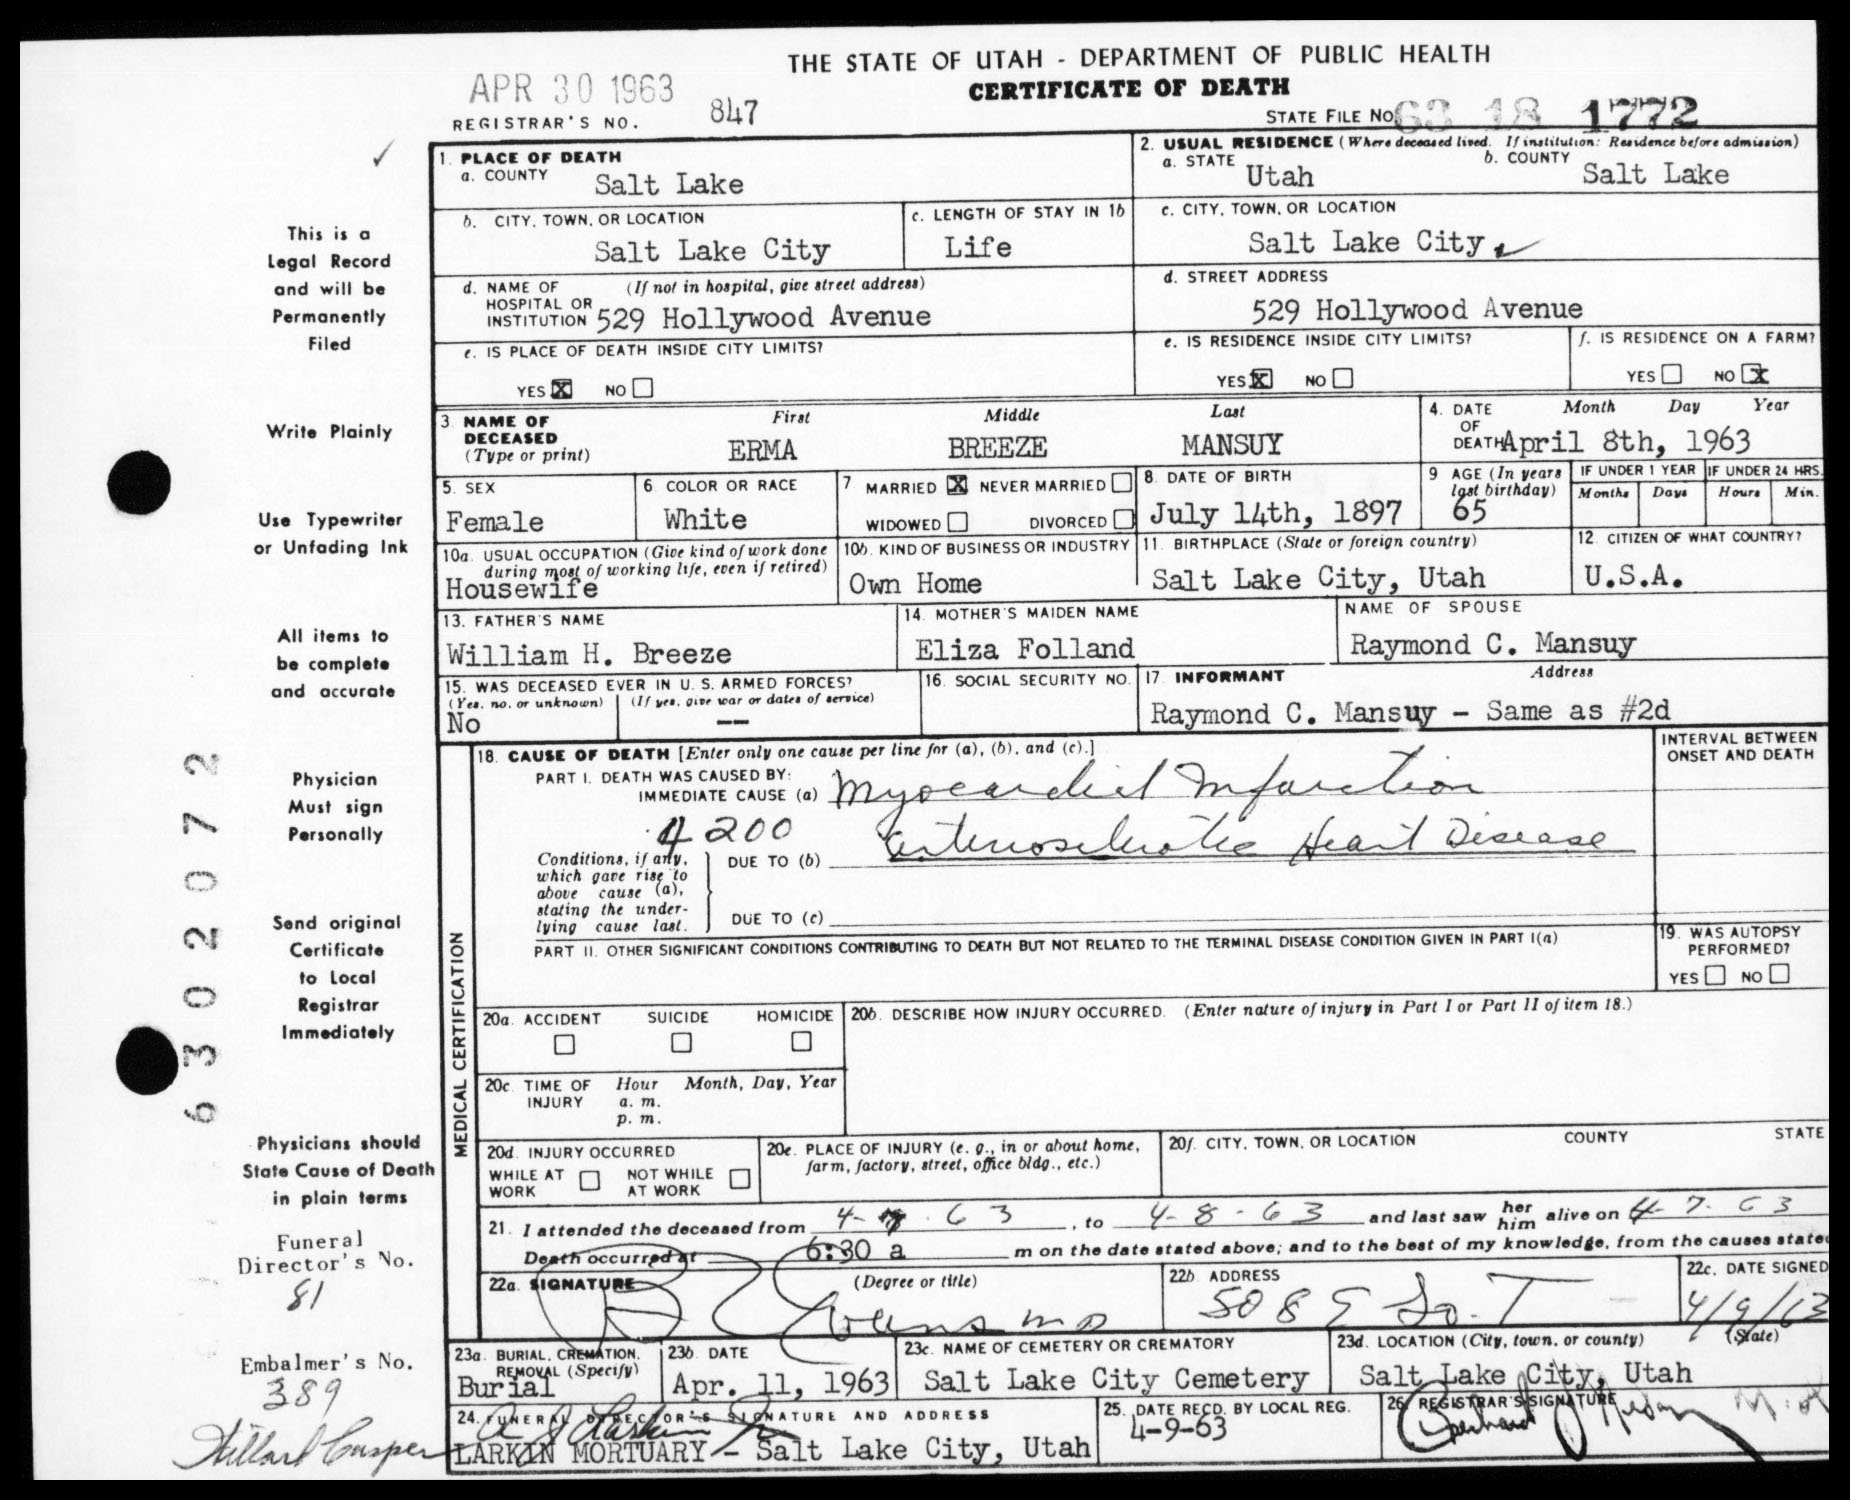 THE STATE OF UTAH - DEPARTMENT OF PUBLIC HEALTH
CERTIFICATE OF DEATH
APR 30 1963
REGISTRAR'S NO. 847
STATE FILE NO. 63 18 1772
1. PLACE OF DEATH
a. COUNTY Salt Lake
2. USUAL RESIDENCE (Where deceased lived. If institution: Residence before admission)
a. STATE Utah b. COUNTY Salt Lake
b. CITY, TOWN, OR LOCATION Salt Lake City
c. LENGTH OF STAY IN 1b Life
c. CITY, TOWN, OR LOCATION Salt Lake City
d. NAME OF HOSPITAL OR INSTITUTION (If not in hospital, give street address) 529 Hollywood Avenue
d. STREET ADDRESS 529 Hollywood Avenue
e. IS PLACE OF DEATH INSIDE CITY LIMITS? YES X NO
e. IS RESIDENCE INSIDE CITY LIMITS? YES X NO
f. IS RESIDENCE ON A FARM? YES NO X
3. NAME OF DECEASED (Type or print) First Middle Last
ERMA BREEZE MANSUY
4. DATE OF DEATH Month Day Year
April 8th, 1963
5. SEX Female
6. COLOR OR RACE White
7. MARRIED X NEVER MARRIED
WIDOWED DIVORCED
8. DATE OF BIRTH July 14th, 1897
9. AGE (In years last birthday) 65
IF UNDER 1 YEAR Months Days
IF UNDER 24 HRS. Hours Min.
10a. USUAL OCCUPATION (Give kind of work done during most of working life, even if retired) Housewife
10b. KIND OF BUSINESS OR INDUSTRY Own Home
11. BIRTHPLACE (State or foreign country) Salt Lake City, Utah
12. CITIZEN OF WHAT COUNTRY? U.S.A.
13. FATHER'S NAME William H. Breeze
14. MOTHER'S MAIDEN NAME Eliza Folland
NAME OF SPOUSE Raymond C. Mansuy
15. WAS DECEASED EVER IN U. S. ARMED FORCES?
(Yes, no, or unknown) No
(If yes, give war or dates of service) --
16. SOCIAL SECURITY NO.
17. INFORMANT Address
Raymond C. Mansuy - Same as #2d
18. CAUSE OF DEATH [Enter only one cause per line for (a), (b), and (c).]
INTERVAL BETWEEN ONSET AND DEATH
PART I. DEATH WAS CAUSED BY:
IMMEDIATE CAUSE (a) Myocardial Infarction
4200
Conditions, if any, which gave rise to above cause (a), stating the underlying cause last.
DUE TO (b) Arteriosclerotic Heart Disease
DUE TO (c)
PART II. OTHER SIGNIFICANT CONDITIONS CONTRIBUTING TO DEATH BUT NOT RELATED TO THE TERMINAL DISEASE CONDITION GIVEN IN PART I(a)
19. WAS AUTOPSY PERFORMED?
YES NO
MEDICAL CERTIFICATION
20a. ACCIDENT SUICIDE HOMICIDE
20b. DESCRIBE HOW INJURY OCCURRED. (Enter nature of injury in Part I or Part II of item 18.)
20c. TIME OF INJURY Hour Month, Day, Year
a. m.
p. m.
20d. INJURY OCCURRED
WHILE AT WORK NOT WHILE AT WORK
20e. PLACE OF INJURY (e. g., in or about home, farm, factory, street, office bldg., etc.)
20f. CITY, TOWN, OR LOCATION COUNTY STATE
21. I attended the deceased from 4-7-63, to 4-8-63 and last saw her him alive on 4-7-63
Death occurred at 6:30 a m on the date stated above; and to the best of my knowledge, from the causes stated
22a. SIGNATURE (Degree or title)
Evans MD
22b. ADDRESS 508 E So. T
22c. DATE SIGNED 4/9/63
23a. BURIAL, CREMATION, REMOVAL (Specify) Burial
23b. DATE Apr. 11, 1963
23c. NAME OF CEMETERY OR CREMATORY Salt Lake City Cemetery
23d. LOCATION (City, town, or county) (State)
Salt Lake City, Utah
24. FUNERAL DIRECTOR'S SIGNATURE AND ADDRESS
LARKIN MORTUARY - Salt Lake City, Utah
25. DATE RECD. BY LOCAL REG. 4-9-63
26. REGISTRAR'S SIGNATURE
This is a
Legal Record
and will be
Permanently
Filed
Write Plainly
Use Typewriter
or Unfading Ink
All items to
be complete
and accurate
Physician
Must sign
Personally
Send original
Certificate
to Local
Registrar
Immediately
Physicians should
State Cause of Death
in plain terms
Funeral
Director's No.
81
Embalmer's No.
389
Willard Casper
6302072